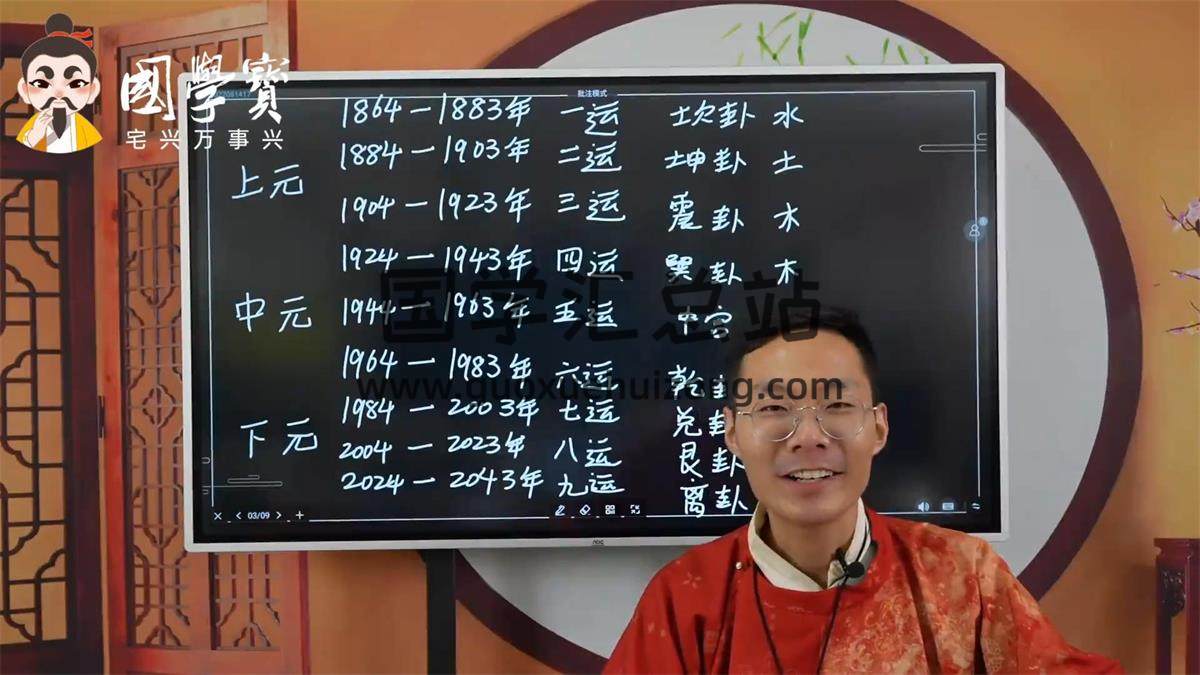 國學寶
宅兴万事兴
批注模式
1864—1883年 一运 坎卦 水
1884—1903年 二运 坤卦 土
上元
1904—1923年 三运 震卦 木
1924—1943年 四运 巽卦 木
中元 1944—1963年 五运 中宫
1964—1983年 六运 乾卦
1984—2003年 七运 兑卦
下元
2004—2023年 八运 艮卦
2024—2043年 九运 离卦
03/09
国学汇总站
www.guoxuehuizong.com